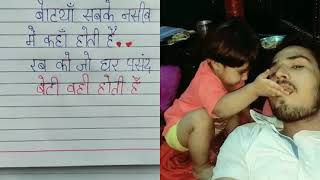 बेटियाँ सबके नसीब
में कहाँ होती है..
रब को जो घर पसंद
बेटी वही होती है